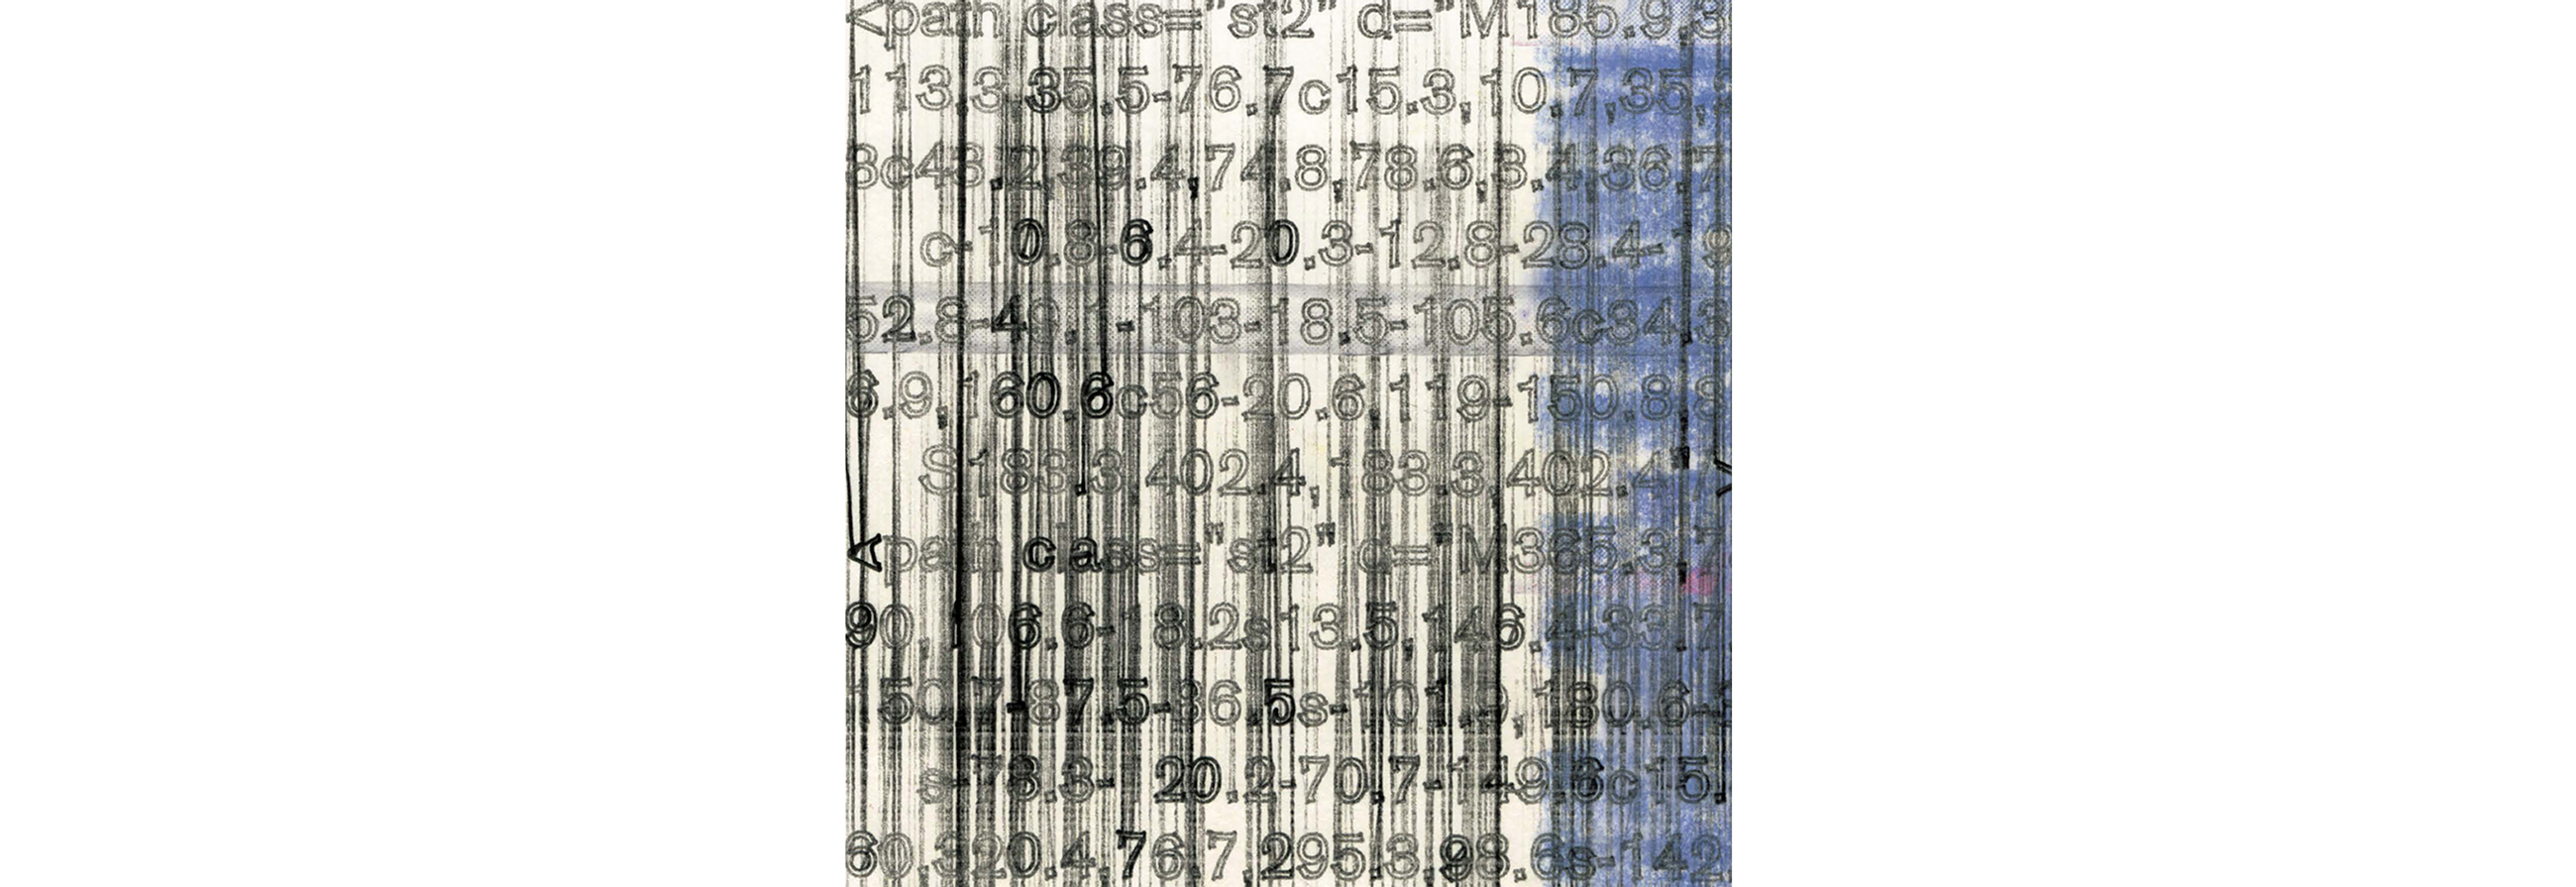 <path class="st2" d="M185.9,3
113.3,35.5-76.7c15.3,10.7,35,
8c43.2,39.4,74.8,78.6,3.4,36.7
c-10.8-6.4-20.3-12.8-28.4-19
52.8-49.1-103-18.5-105.6c34.3
6.9,160.6c56-20.6,119-150.8,8
S183.3,402.4,183.3,402.4"
<path class="st2" d="M365.3,7
90,106.6-18.2s13.5,146.4-33.7
150.7-87.5-36.5s-101.9,180.6-
s-78.3-120.2-70.7-149.6c15.
60,320.4,76.7,295.3,98.6s-142